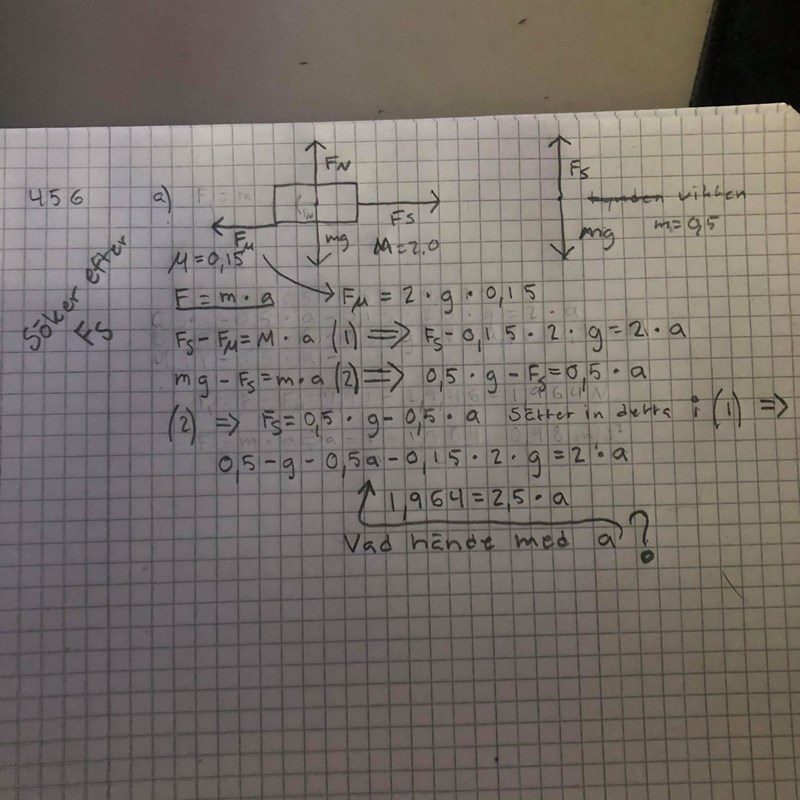 456 a)
FN
Fμ
Fs
mg
M=2.0
μ=0,15
Fs
vikten
mg
m=0,5
Söker efter
Fs
F=m·a
Fμ = 2·g·0,15
Fs-Fμ=M·a (1) => Fs-0,15·2·g=2·a
mg-Fs=m·a (2) => 0,5·g-Fs=0,5·a
(2) => Fs=0,5·g-0,5·a Sätter in detta i (1) =>
0,5-g-0,5a-0,15·2·g=2·a
1,964=2,5·a
Vad hände med a?